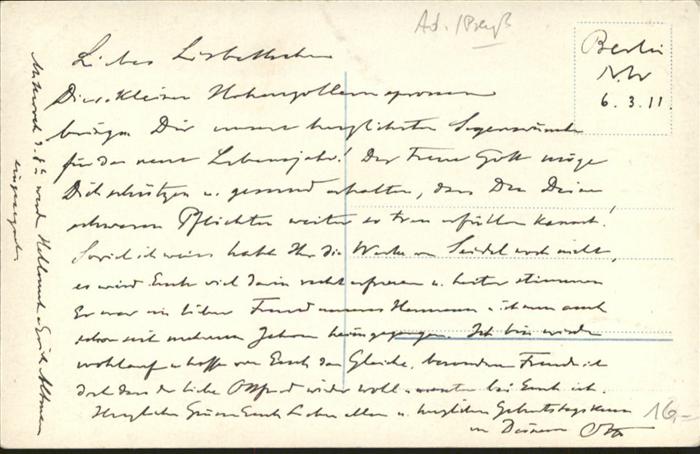 Ad. / Preuß
Berlin
NW
6.3.11.
Liebes Lisbethchen
Diese kleinen Hohenzollernsprossen
bringen Dir unsere herzlichsten Segenswünsche
für das neue Lebensjahr! Der treue Gott möge
Dich schützen u. gesund erhalten, dass Du Deine
schweren Pflichten weiter so treu erfüllen kannst!
Soviel ich weiss habt Ihr die Werke von Seidel noch nicht,
es wird Euch viel darin recht erfreuen u. heiter stimmen
Er war ein lieber Freund unseres Hermann u. ist nun auch
schon seit mehreren Jahren heimgegangen. Ich bin wieder
wohlauf u. hoffe von Euch das Gleiche, besonders freue ich
dass der liebe wieder wohl u. bei Euch ist.
Herzliche Grüsse Euch Lieben allen u. herzlichen Geburtstagskuss
von Deinem Otto
Mittwoch d. 8ten werden Hellmuth u. Erich Altmann
eingesegnet
16,-